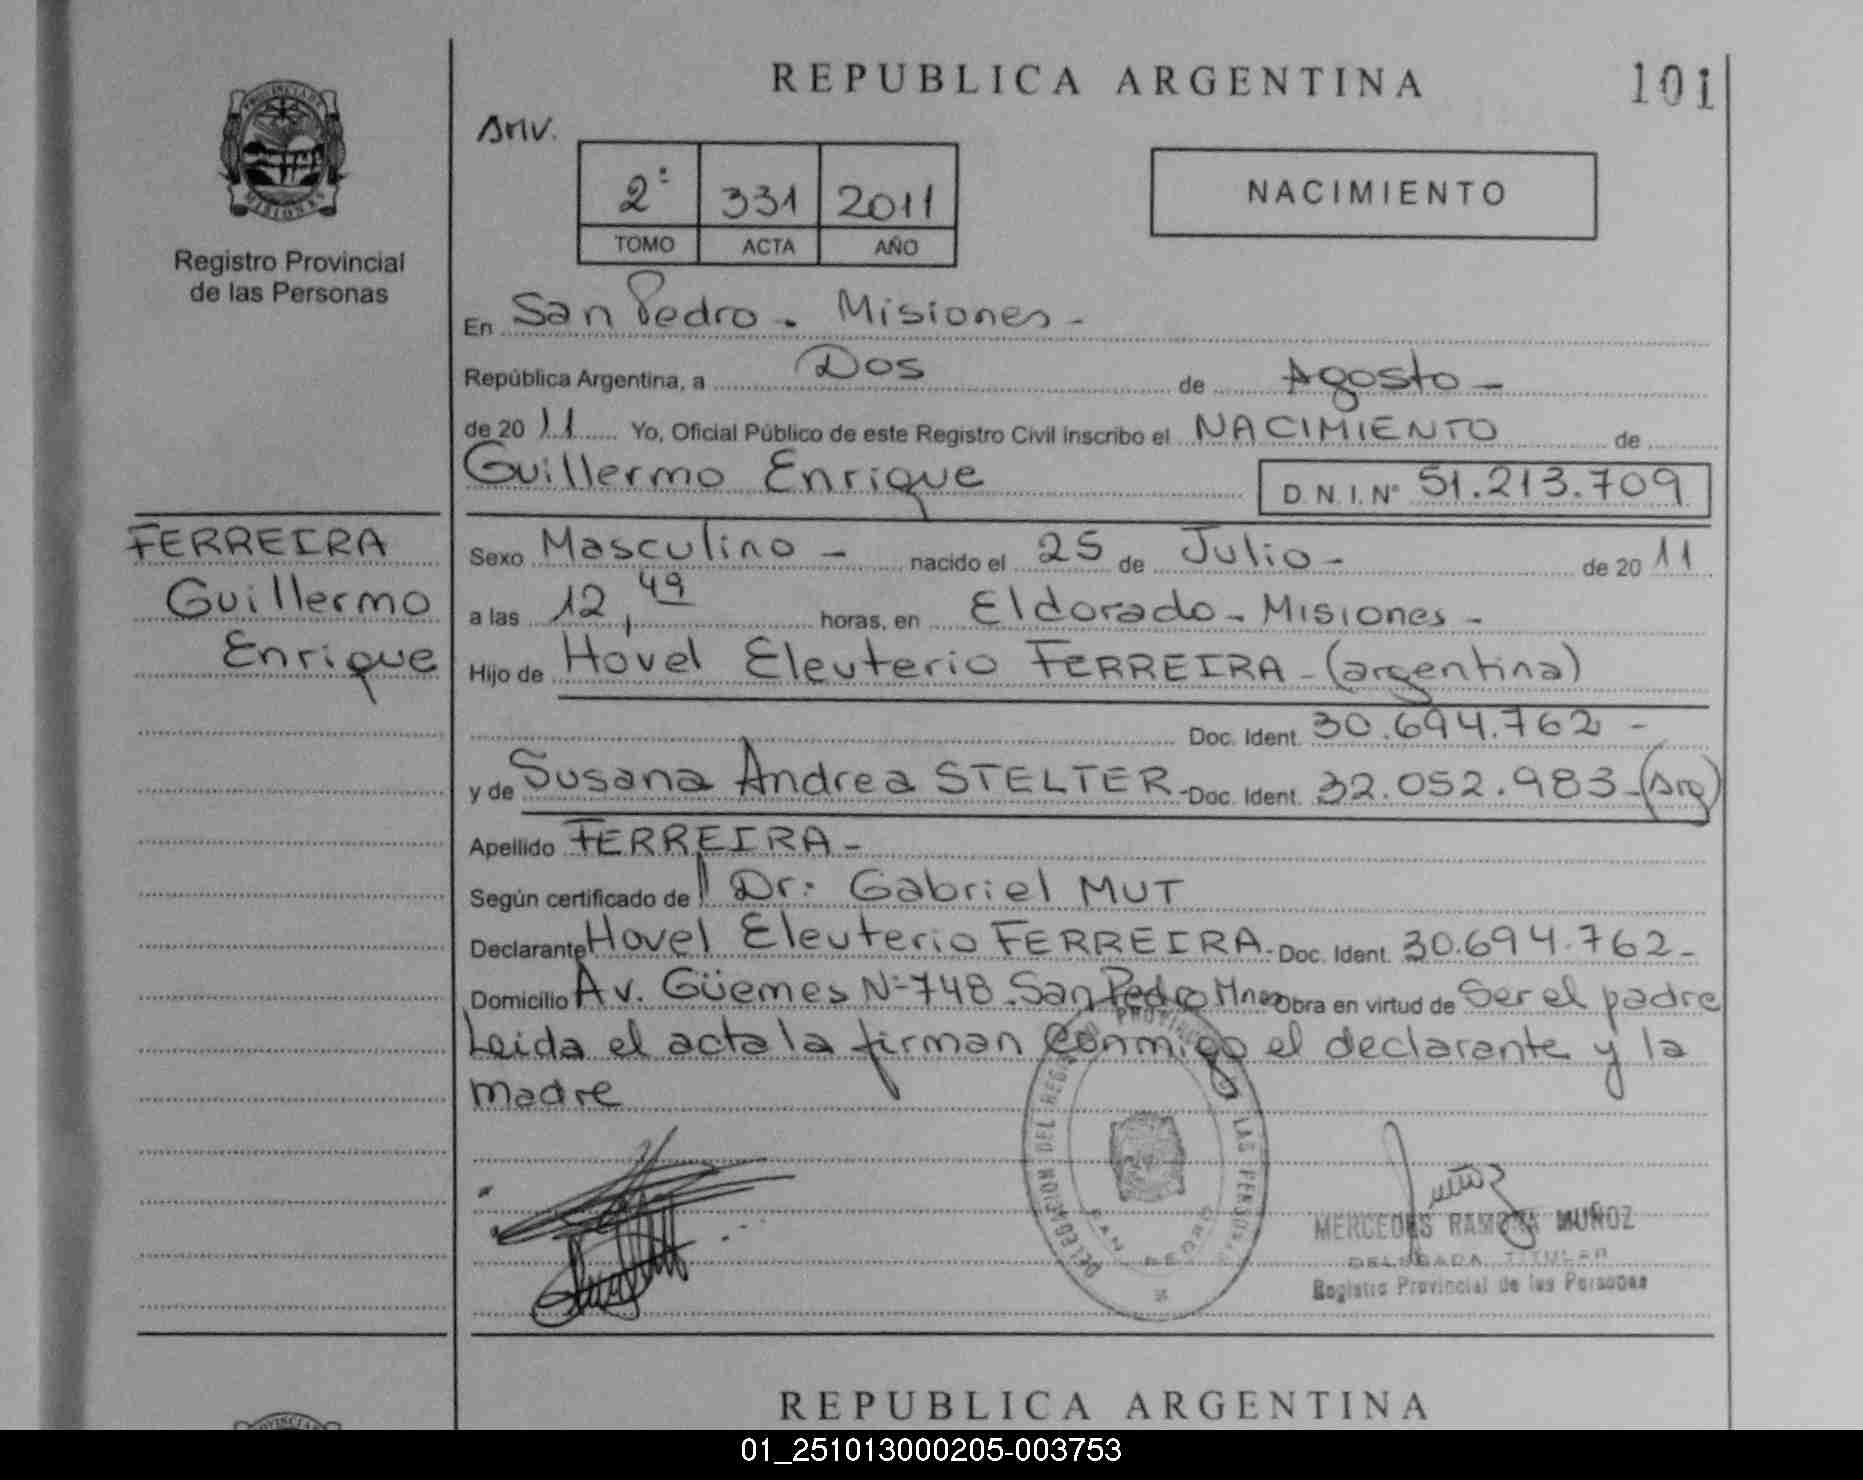 REPUBLICA ARGENTINA
101
PROVINCIA DE MISIONES
Registro Provincial
de las Personas
2º 331 2011
TOMO ACTA AÑO
NACIMIENTO
En San Pedro - Misiones -
República Argentina, a Dos de Agosto -
de 20 11 Yo, Oficial Público de este Registro Civil inscribo el NACIMIENTO de
Guillermo Enrique D.N.I. Nº 51.213.709
FERREIRA
Guillermo
Enrique
Sexo Masculino - nacido el 25 de Julio - de 20 11
a las 12,49 horas, en Eldorado - Misiones -
Hijo de Hovel Eleuterio FERREIRA - (argentina)
Doc. Ident. 30.694.762 -
y de Susana Andrea STELTER - Doc. Ident. 32.052.983 - (Arg)
Apellido FERREIRA -
Según certificado de Dr: Gabriel MUT
Declarante Hovel Eleuterio FERREIRA - Doc. Ident. 30.694.762 -
Domicilio Av. Güemes Nº 748. San Pedro Mnes Obra en virtud de Ser el padre
Leida el acta la firman conmigo el declarante y la
madre
DELEGACION DEL REGISTRO PROVINCIAL DE LAS PERSONAS
SAN PEDRO
MERCEDES RAMONA MUÑOZ
DELEGADA TITULAR
Registro Provincial de las Personas
REPUBLICA ARGENTINA
01_251013000205-003753